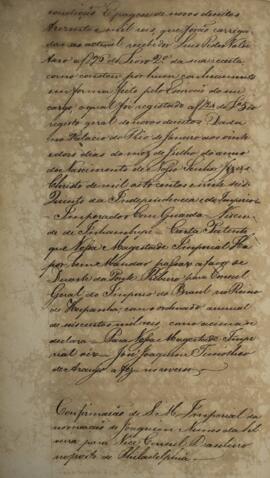 condição Epagou de novos direitos
trezentos mil reis que forão carrega
dos ao actual recebedor
a f 175 do Livro 2º da sua receita
como constou por hum conhecimento
em forma feito pelo Escrivão do seu
cargo o qual foi registado a f
registo geral dos novos direitos Dada
no Palacio do Rio de Janeiro aos vinte
e dois dias do mez de Julho do anno
do Nascimento de Nosso Senhor Jesus
Christo de mil oito centos e vinte seis
Quinto da Independencia e do Imperio
Imperador Com Guarda Viscon
de de Inhambupe Carta Patente
que Vossa Magestade Imperial Ha
por bem Mandar passar a favor de
Duarte da Ponte Ribeiro para Consul
Geral do Imperio do Brasil no Reino
de Hespanha, com o ordenado annual
de seiscentos mil reis, como acima se
declara Para Vossa Magestade Impe
rial ver João Joaquim Timotheo
de Araujo a fez
Confirmação de S. M. Imperial da
nomeação de Joaquim da Sil
veira para Vice Consul Brasileiro
no porto de Philadelphia